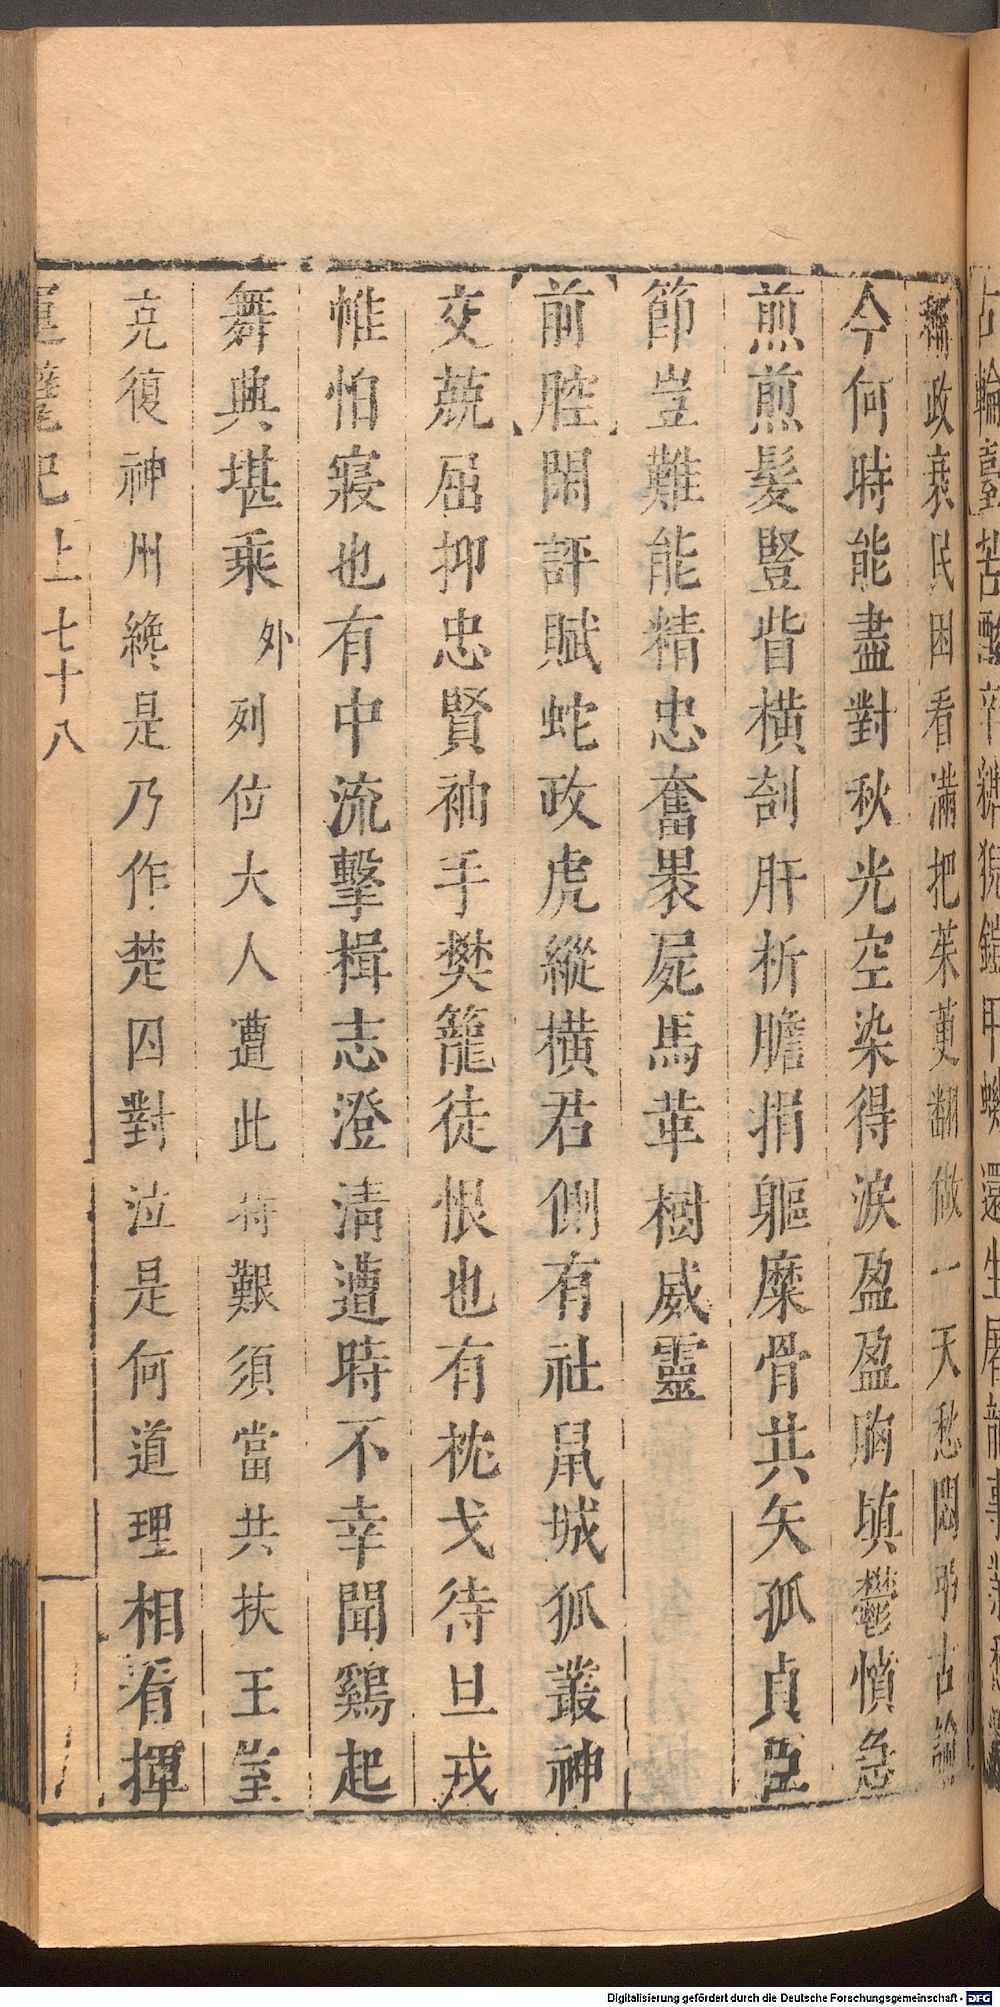 政衰民困看滿把茱萸翻做一天愁悶爭古
今何時能盡對秋光空染得淚盈盈胸填鬱憤急
煎煎髮豎眥橫刳肝折膽捐軀糜骨共矢孤貞臣
節豈難能精忠奮褁屍馬革樹威靈
前腔閑評賦蛇政虎縱橫君側有社鼠城狐叢神
交競屈抑忠賢袖手樊籠徒恨也有枕戈待旦戎
帷怕寢也有中流擊楫志澄清遭時不幸聞鷄起
舞典堪乘外列位大人遭此時艱須當共扶王室
克復神州纔是乃作楚囚對泣是何道理相看揮
記上七十八
Digitalisierung gefördert durch die Deutsche Forschungsgemeinschaft - DFG